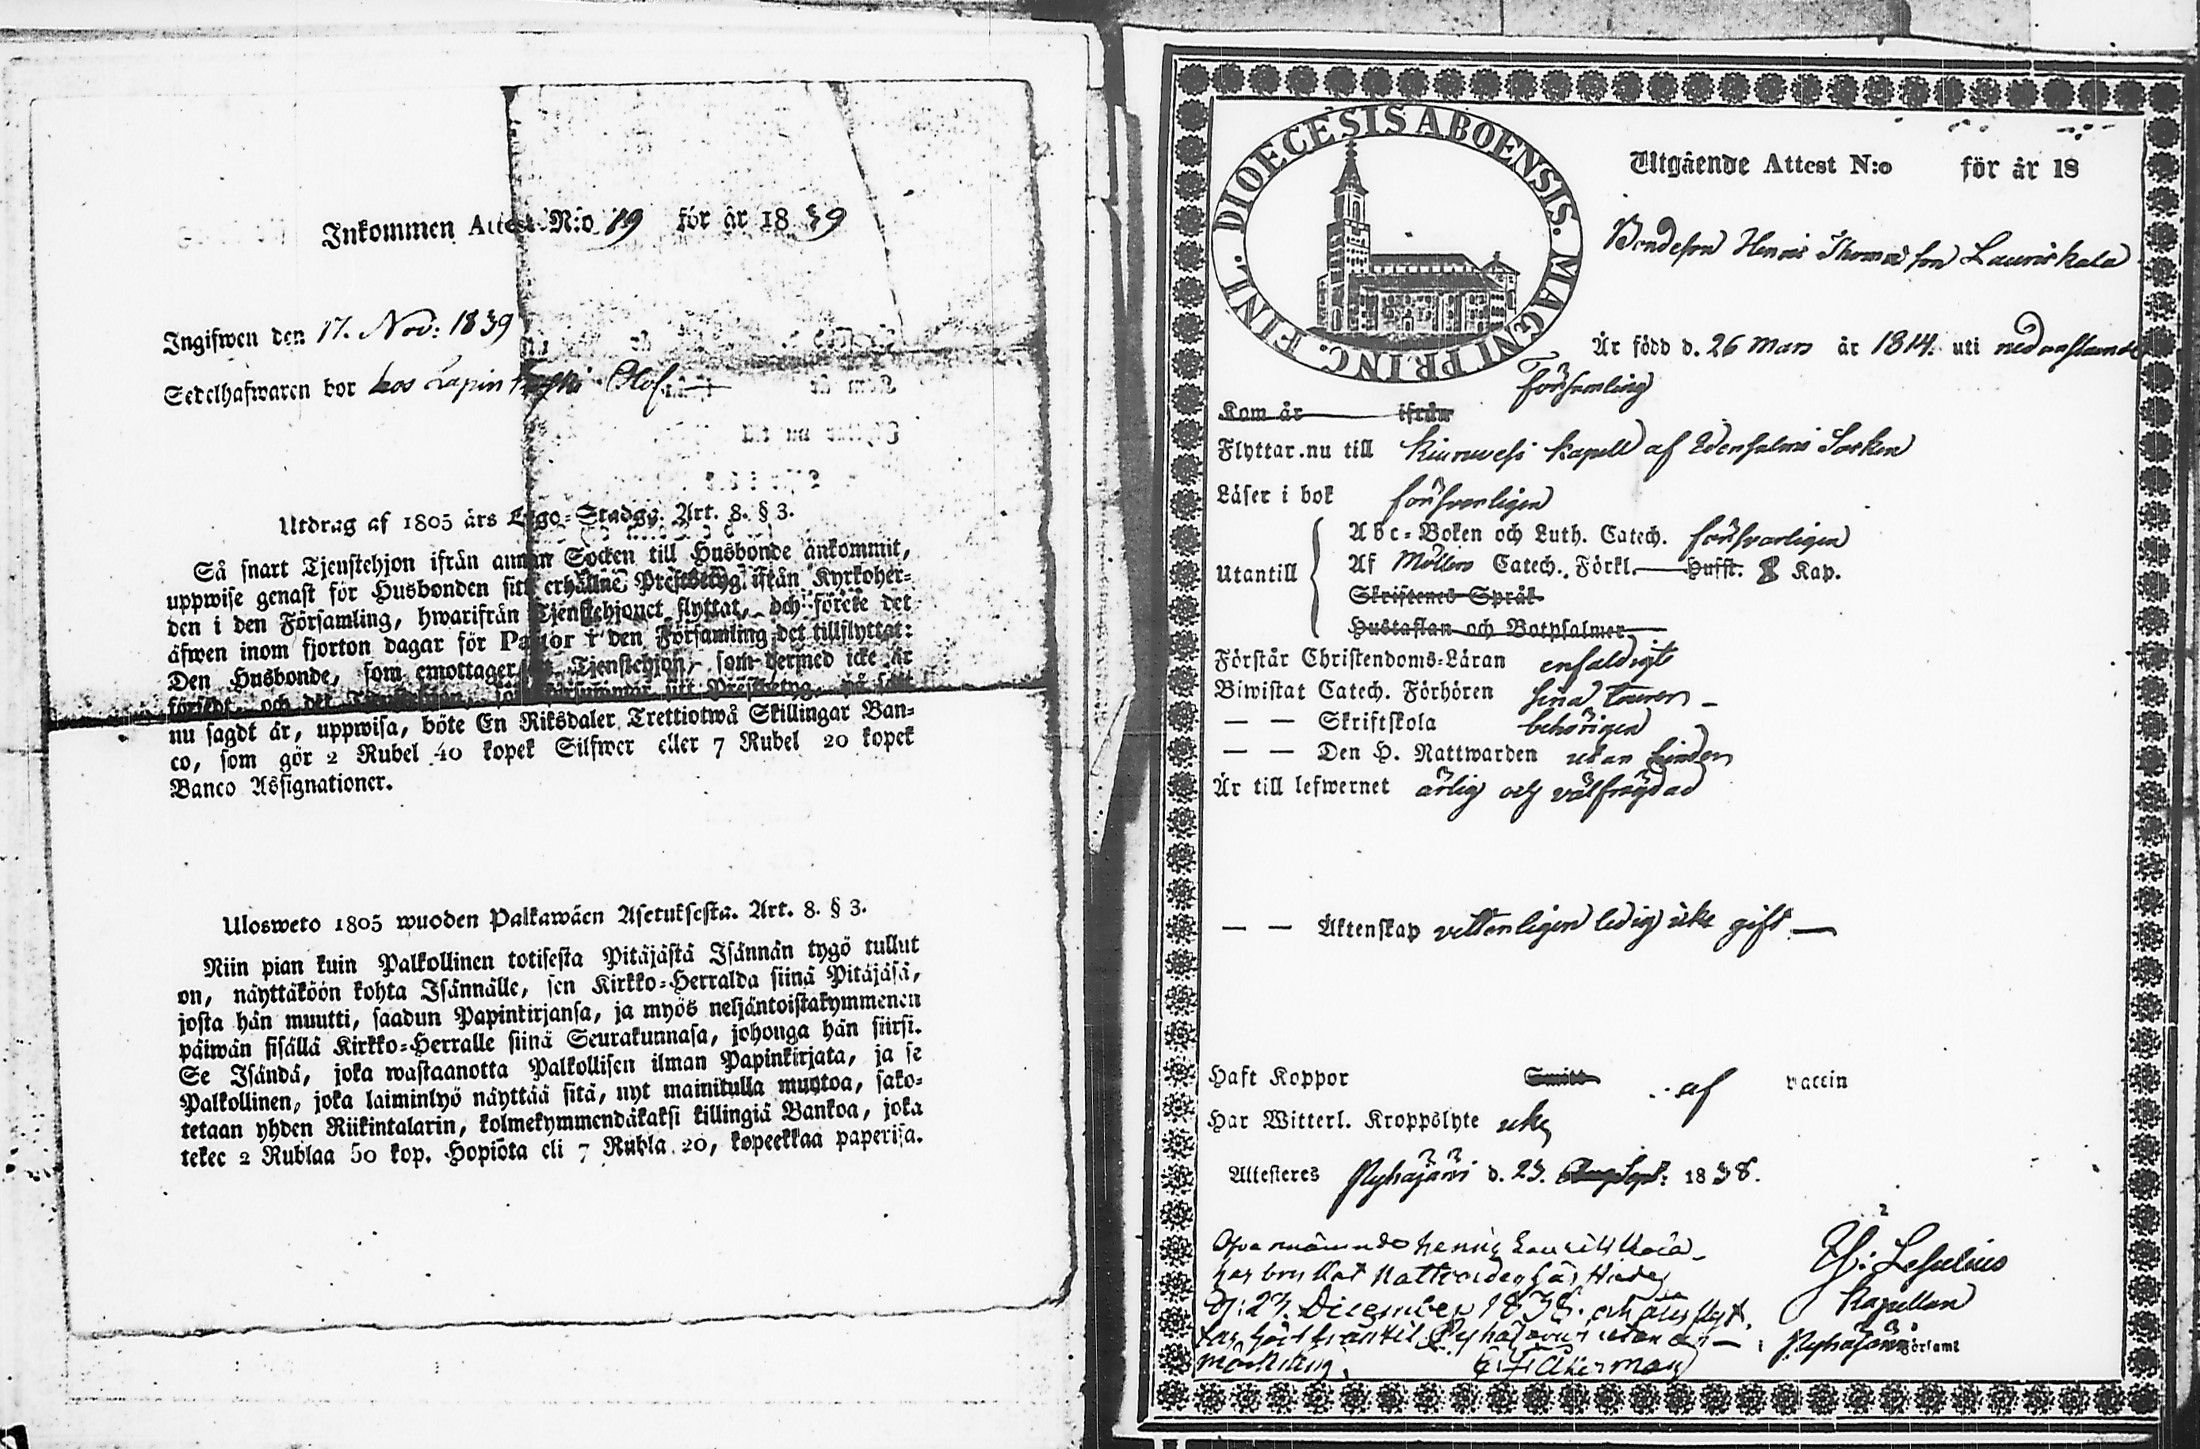 Inkommen Attest N:o 19 för år 1839
Ingifwen den 17. Nov: 1839
Sedelhafwaren bor hos Lapin Olof
Utdrag af 1805 års Lego-Stadga. Art. 8. § 3.
Så snart Tjenstehjon ifrån annan Socken till Husbonde ankommit,
uppwise genast för Husbonden sitt erhållne Prestbetyg ifrån Kyrkoher-
den i den Församling, hwarifrån Tjenstehjonet flyttat, och förete det
äfwen inom fjorton dagar för Pastor i den Församling det tillflyttat:
Den Husbonde, som emottager Tjenstehjon, som dermed icke är
försedt, och det Tjenstehjon, som försummar sitt Prestbetyg, på sätt
nu sagdt är, uppwisa, böte En Riksdaler Trettiotwå Skillingar Ban-
co, som gör 2 Rubel 40 kopek Silfwer eller 7 Rubel 20 kopek
Banco Assignationer.
Ulosweto 1805 wuoden Palkawäen Asetuksesta. Art. 8. § 3.
Niin pian kuin Palkollinen totisesta Pitäjästä Isännän tygö tullut
on, näyttäköön kohta Isännälle, sen Kirkko-Herralda siinä Pitäjäsä,
josta hän muutti, saadun Papinkirjansa, ja myös neljäntoistakymmenen
päiwän sisällä Kirkko-Herralle siinä Seurakunnasa, johonga hän siirsi.
Se Isändä, joka wastaanotta Palkollisen ilman Papinkirjata, ja se
Palkollinen, joka laiminlyö näyttää sitä, nyt mainitulla muotoa, sako-
tetaan yhden Riikintalarin, kolmekymmendäkaksi killingiä Bankoa, joka
tekee 2 Rublaa 50 kop. Hopiota eli 7 Rubla 20, kopeekkaa paperisa.
DIOECESIS ABOENSIS. MAGNI PRINC. FINL.
Utgående Attest N:o för år 18
Bondeson Henric Thomasson Lauriskala
Är född d. 26 Mars år 1814. uti nedanstående
Församling
Kom år ifrån
Flyttar nu till Kiuruwesi Kapell af Idensalmi Socken
Läser i bok försvarligen
Utantill
Abc-Boken och Luth. Catech. försvarligen
Af Möllers Catech. Förkl. Hufst. 8 Kap.
Skriftenes Språk
Hustaflan och Botpsalmer
Förstår Christendoms-Läran enfaldigt
Biwistat Catech. Förhören sina turer
— — Skriftskola behörigen
— — Den H. Nattwarden utan hinder
Är till lefwernet ärlig och välfrägdad
— — Äktenskap vitterligen ledig icke gift
Haft Koppor Smitt af vaccin
Har Witterl. Kroppslyte icke
Attesteres Pyhäjärvi d. 23. Sept: 1838.
Ofvannämnde Henric
har brukat Nattvarden här
d: 23. December 1838.
Pyhäjärvi utan an-
märkning. Åkerman
Kapellan
Pyhäjärvi Församl